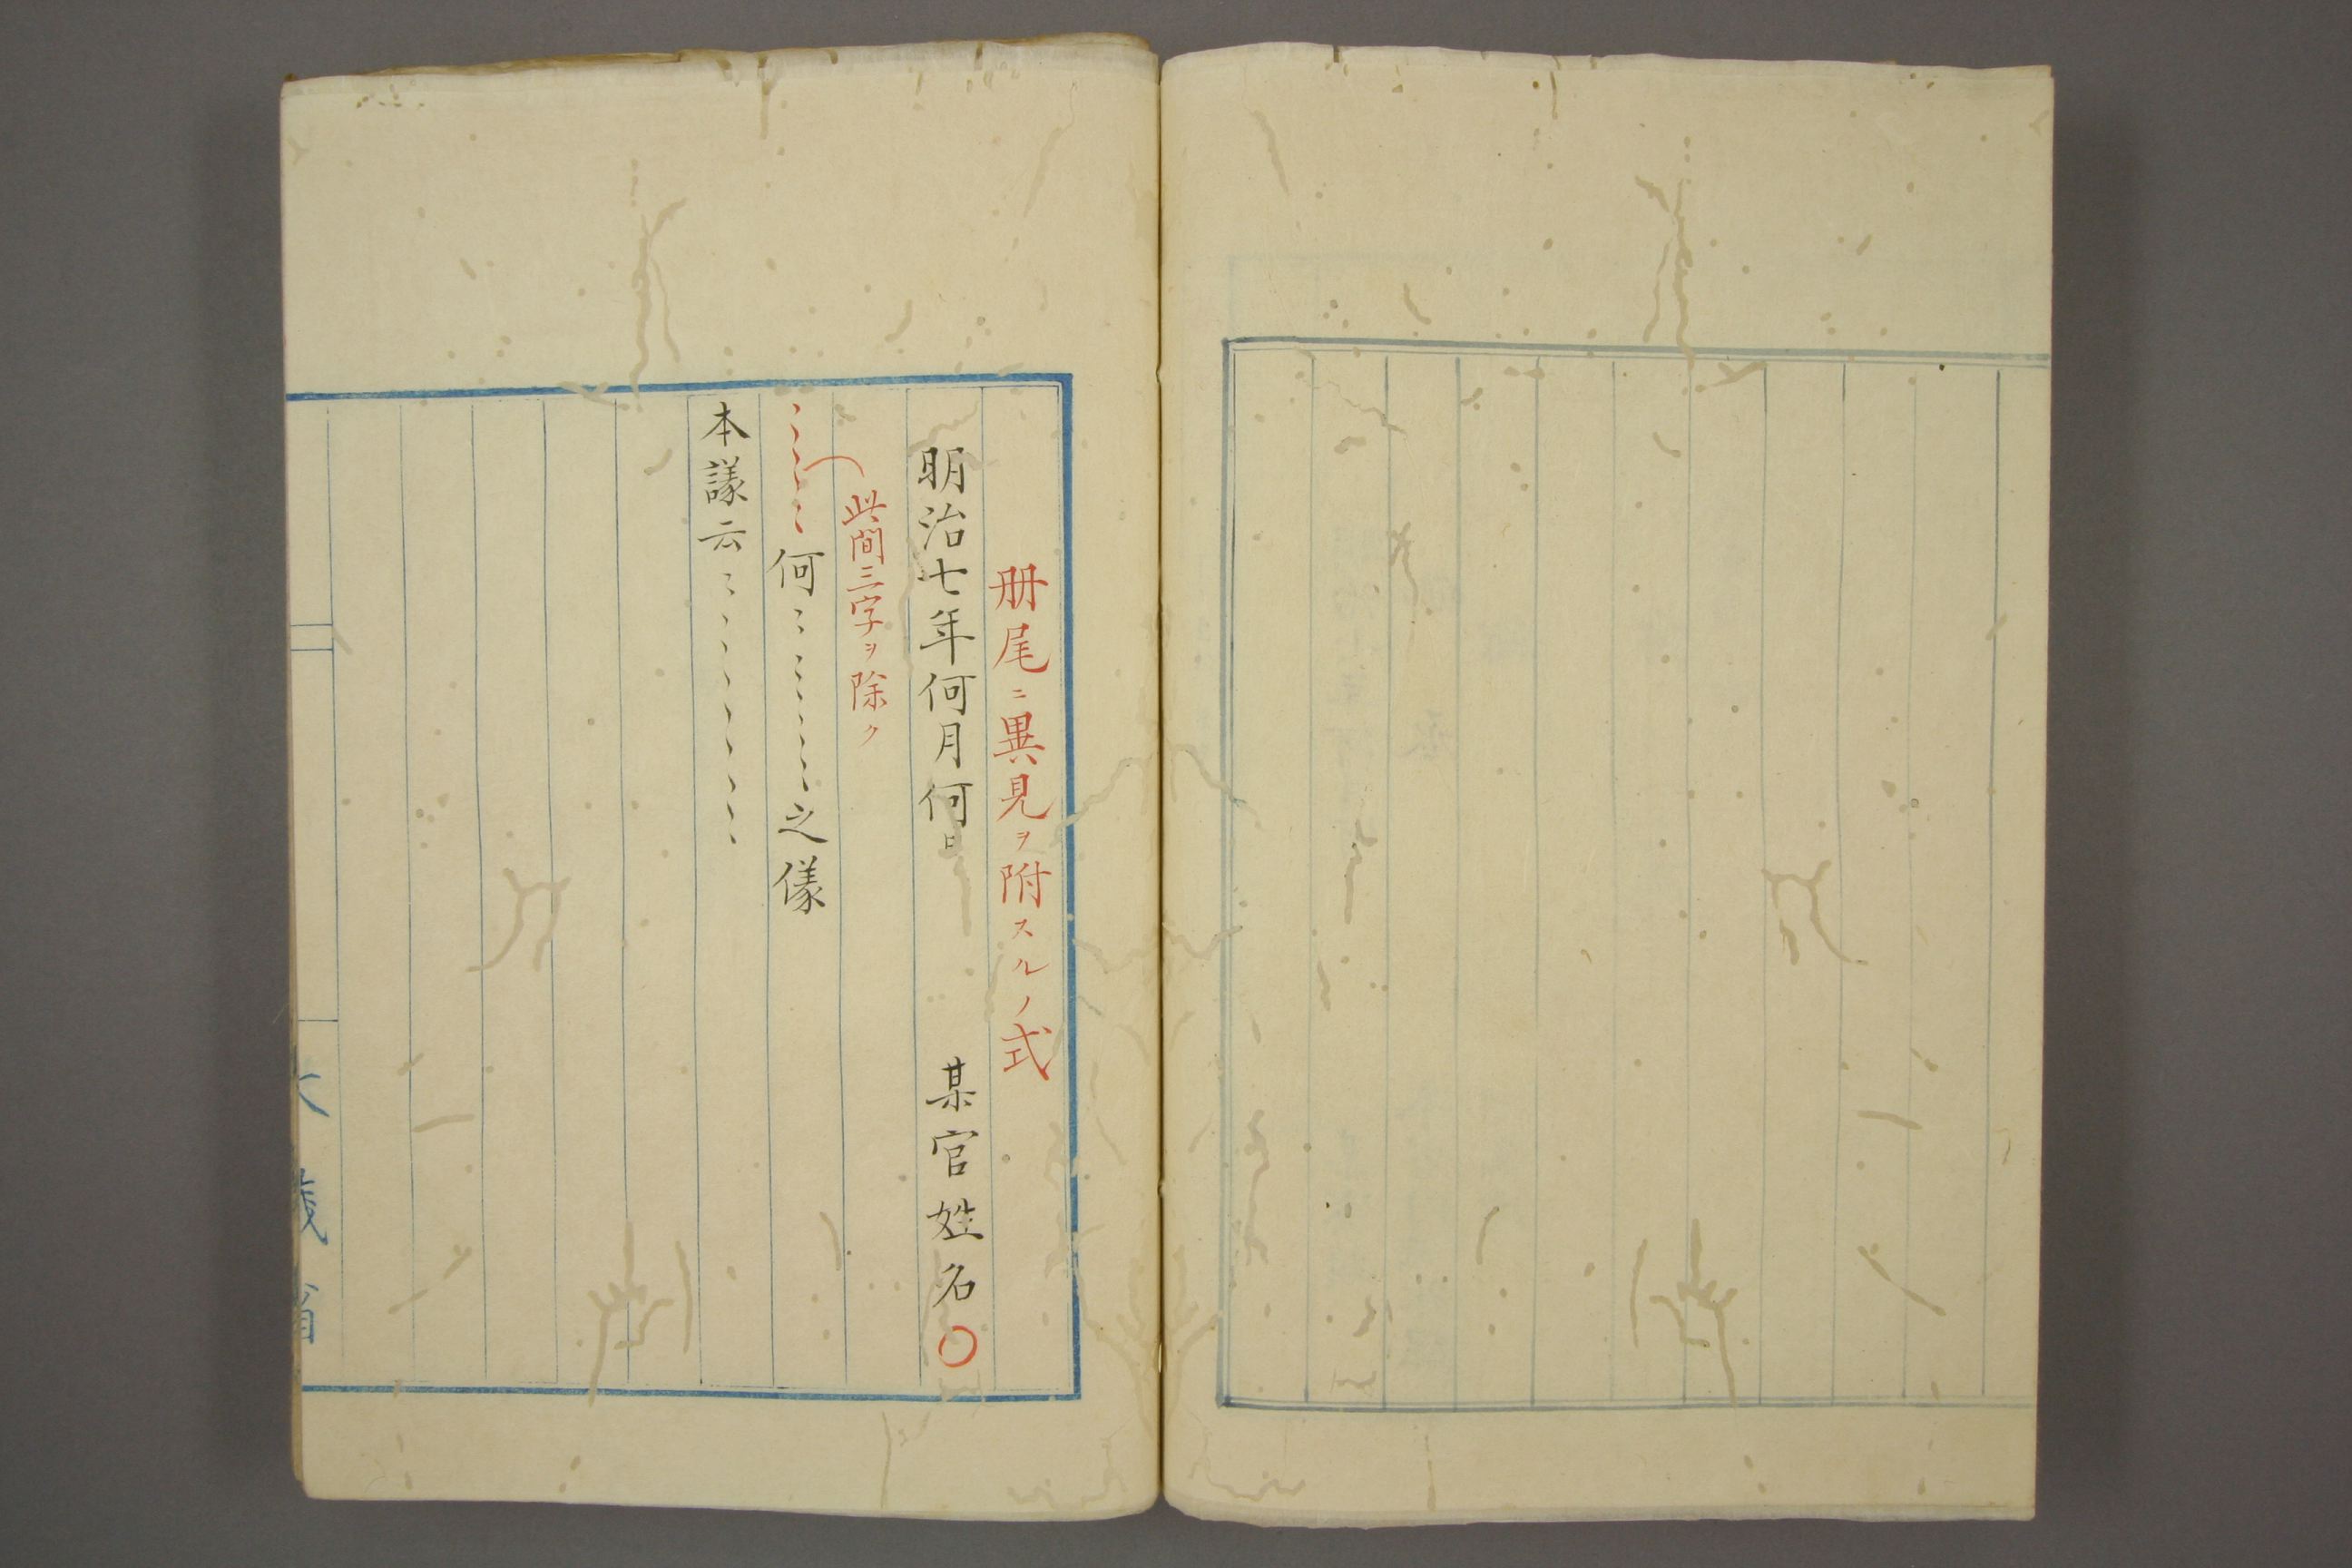 册尾ニ異見ヲ附スルノ式
明治七年何月何日 某官姓名〇
此間三字ヲ除ク
〻〻〻〻何〻〻〻〻〻〻〻之儀
本議云〻〻〻〻〻〻〻〻〻
大蔵省